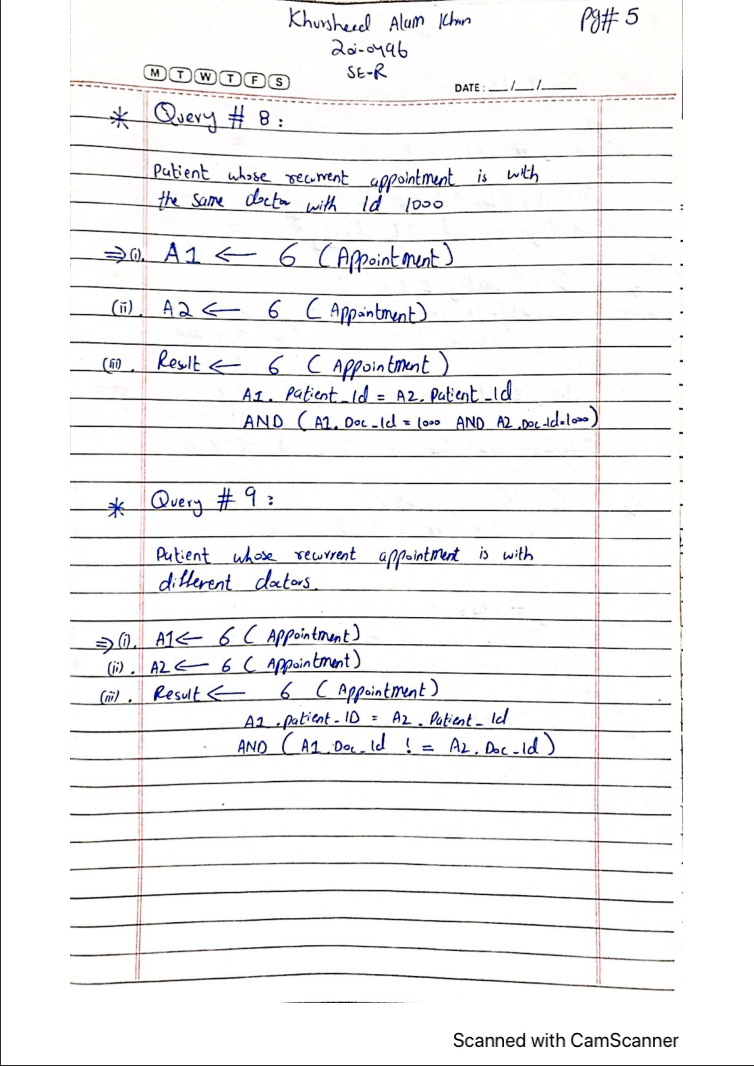 Khursheed Alam Khan
Pg# 5
20i-0496
SE-R
M T W T F S
DATE: __/__/____
* Query # 8:
Patient whose recurrent appointment is with
the same doctor with Id 1000
⇒ (i). A1 ← 6 (Appointment)
(ii). A2 ← 6 (Appointment)
(iii). Result ← 6 (Appointment)
A1. Patient_Id = A2. Patient_Id
AND (A1. Doc_Id = 1000 AND A2.Doc_Id=1000)
* Query # 9:
Patient whose recurrent appointment is with
different doctors.
⇒ (i). A1 ← 6 (Appointment)
(ii). A2 ← 6 (Appointment)
(iii). Result ← 6 (Appointment)
A1.Patient_ID = A2. Patient_Id
AND (A1.Doc_Id != A2.Doc_Id)
Scanned with CamScanner